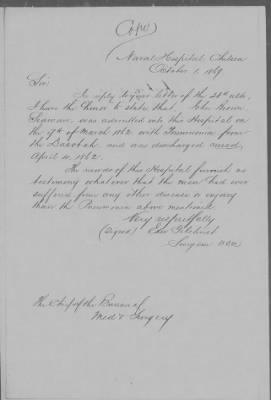 (Copy)
Naval Hospital, Chelsea
October 1, 1869
Sir:
In reply to your letter of the 28th ulto,
I have the honor to state that, John Brown,
Seaman, was admitted into this Hospital on
the 17th of March 1862, with Pneumonia from
the Dacotah, and was discharged cured,
April 4, 1862.
The records of this Hospital furnish no
testimony whatever that the man had ever
suffered from any other disease or injury
than the Pneumonia above mentioned.
Very respectfully
(Signed)
Surgeon U.S.N.
The Chief of the Bureau of
Med & Surgery